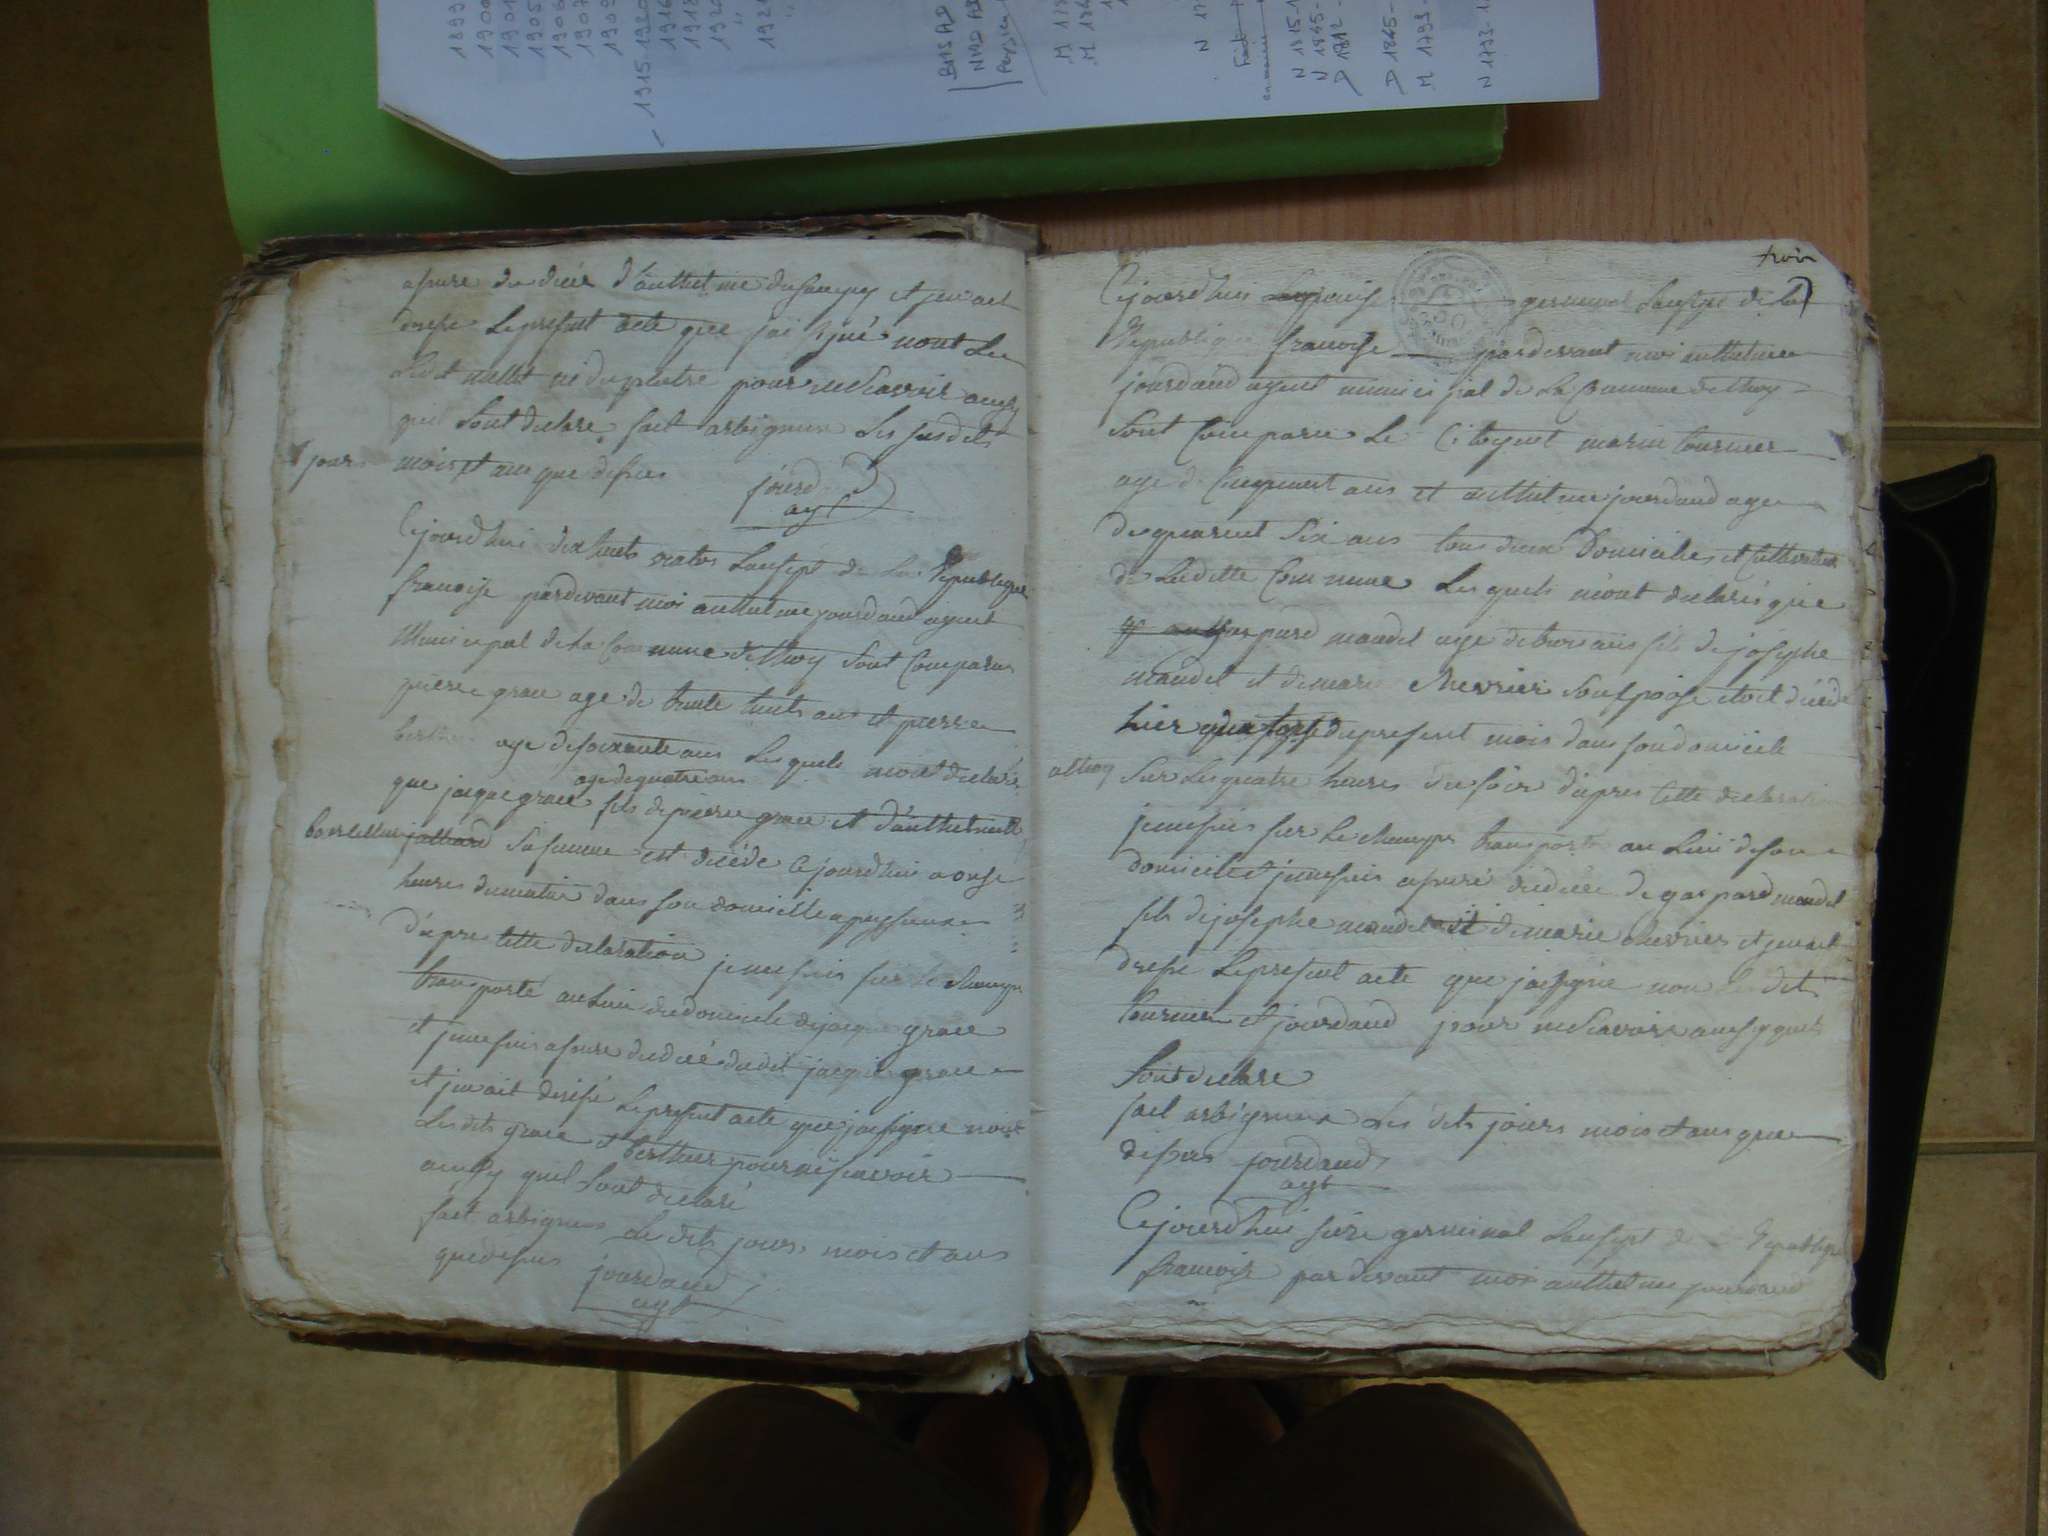 1893
1900
1901
1905
1906
1907
1909
1915-1920
1916
1918
1920
1921
BMS AD
NMD AD
M 179
N 17
N 1815-1
N 1845-
D 1812-
D 1845-
M 1793-
N 1793-1
assure du décé d'anthelme et jen ait
dressé Le present acte que jai signé nont Les
Ledit millet ni duplatre pour ne Scavoir ausy
quil Sont declare fait arbignieu Les susdits
jours mois et ans que dessus
jourd
agt
Cejourdhui dix huits vantos Lansept de La Republique
francoise pardevant moi anthelme jourdand agent
Municipal de La Commune de thoy Sont Comparus
pierre grace age de trente huits ans et pierre
berthier age de soixante ans Lesquels mont declaré
age de quatre ans
que jacque grace fils de pierre grace et d'anthelmette
Sa femme est décéde Cejourdhui a onze
heures du matin dans son domicille a peyzieux
D'apre cette declaration je me suis sur le Champs
transporté au Lieu du domicile de jacque grace
et je me suis assure du décé du dit jacque grace
et jen ait dressé Le present acte que jai signe nont
Les dits grace et berthier pour ne scavoir
ausy quil Sont declaré
fait arbignieu Le dits jours mois et ans
que dessus jourdand
agt
trois
Cejourdhui germinal Lansept de La
Republique francoise pardevant moi anthelme
jourdand agent municipal de La Commune de thoy
Sont Comparu Le Citoyent marin tournier
age de Cinquant ans et anthelme jourdand age
de quarent Six ans tous deux Domicilies et Cultivateur
de Laditte Commune Lesquels m'ont declarés que
gaspard mandel age de trois ans fils de josephe
mandel et de marie Chevrier Son epouse etoit décédé
hier quatorze du present mois dans son domicile
a thoy Sur Les quatre heures du soir d'apres cette declaration
je me suis sur Le Champs transporté au Lieu de son
domicile et je me suis assuré du décé de gaspard mandel
fils de josephe mandel et de marie Chevrier et jen ait
dressé Le present acte que jai signe non Les dits
tournier et jourdand pour ne Scavoir ausy quils
Sont declare
fait arbignieu Les dits jours mois et ans que
dessus jourdand
agt
Cejourdhui seize germinal Lansept de Republique
francoise par devant moi anthelme jourdand